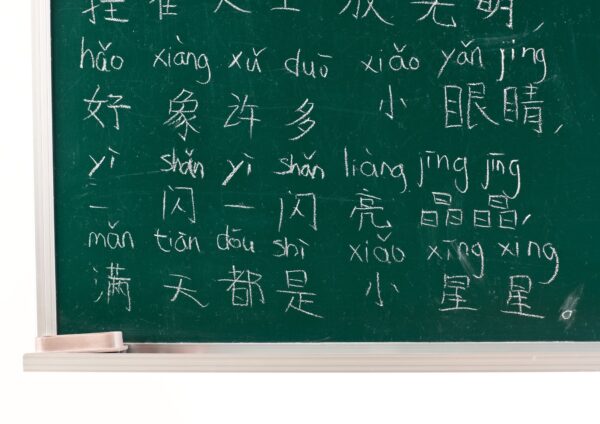 天上放光明,
hǎo xiàng xǔ duō xiǎo yǎn jīng
好象许多小眼睛,
yì shǎn yì shǎn liàng jīng jīng
一闪一闪亮晶晶,
mǎn tiān dōu shì xiǎo xīng xing
满天都是小星星。